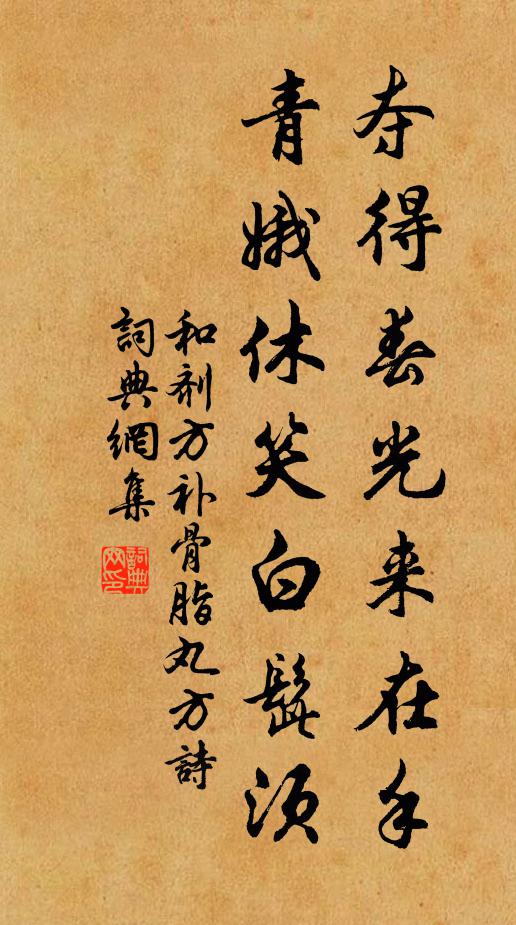 夺得春光来在手
青娥休笑白髭须
和剂方补骨脂丸方詩
詞典網集
詞典网印